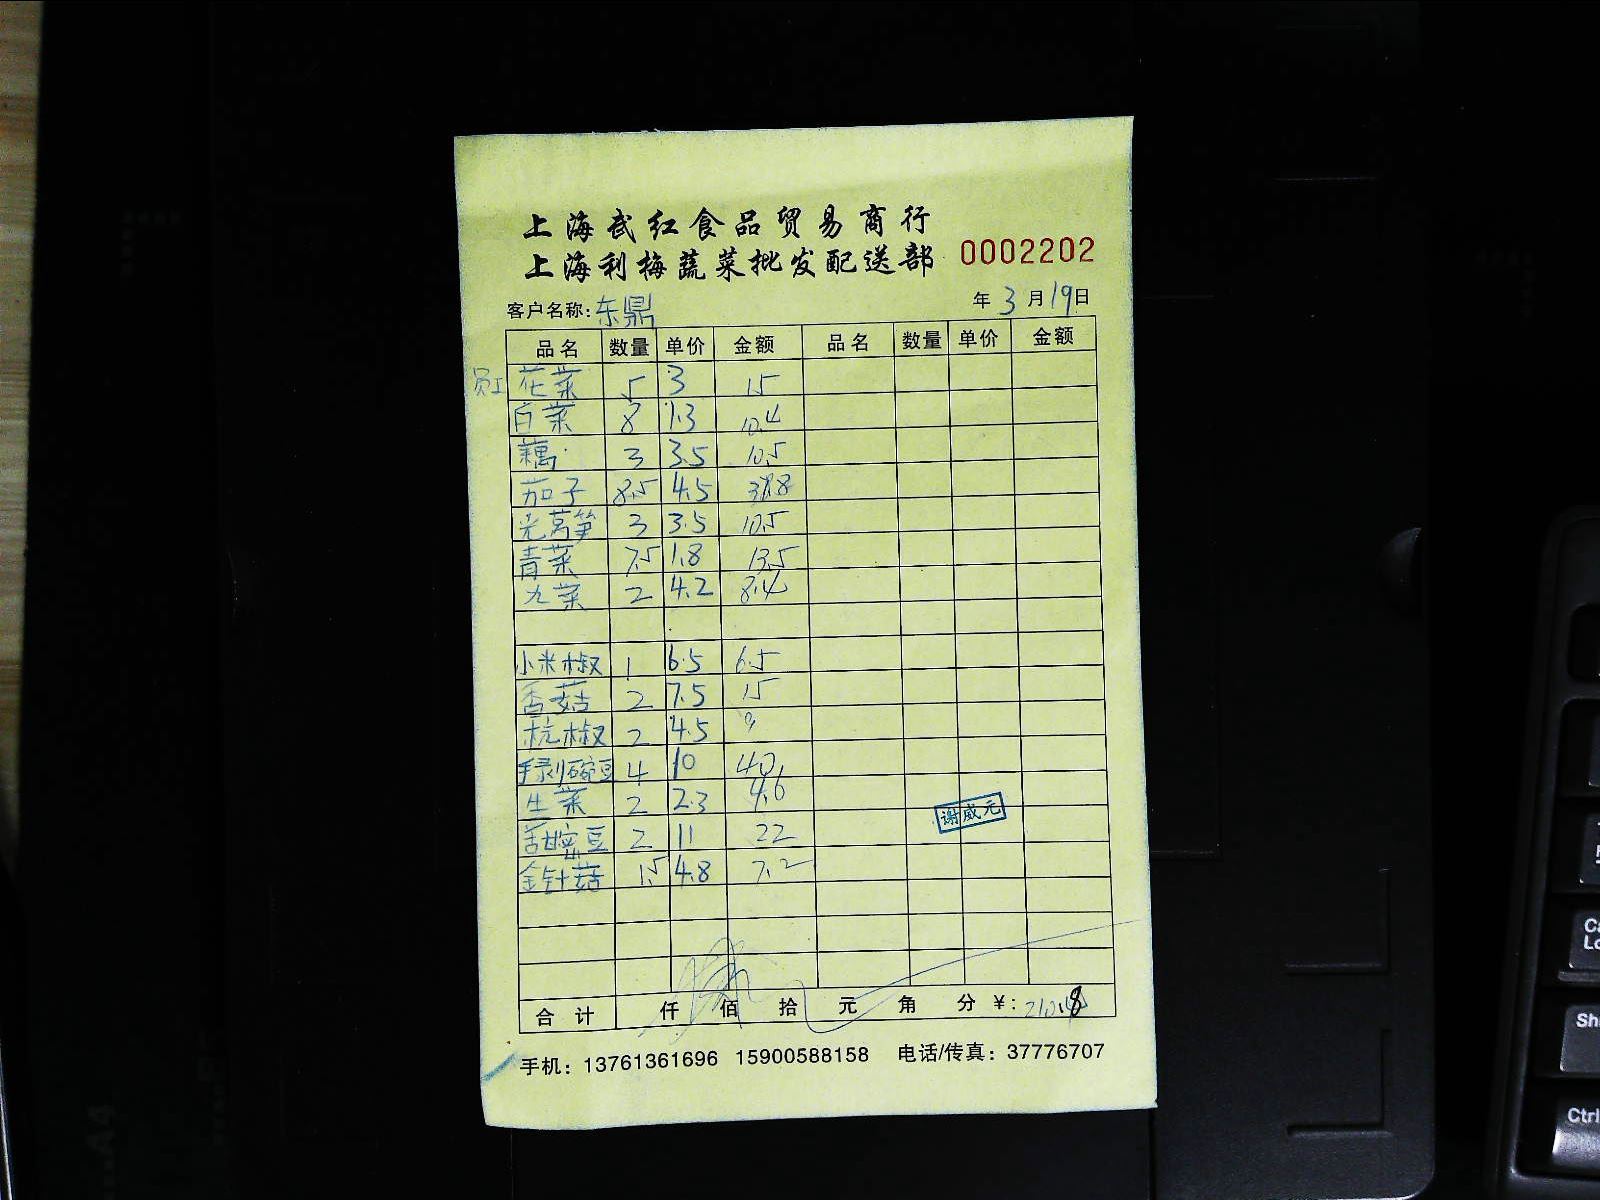 上海武红食品贸易商行
上海利梅蔬菜批发配送部 0002202
客户名称: 东鼎 年 3 月 19 日
品名 数量 单价 金额 品名 数量 单价 金额
员工 花菜 5 3 15
白菜 8 1.3 10.4
藕 3 3.5 10.5
茄子 8.5 4.5 38.8
光莴笋 3 3.5 10.5
青菜 7.5 1.8 13.5
九菜 2 4.2 8.4
小米椒 1 6.5 6.5
香菇 2 7.5 15
杭椒 2 4.5 9
手剥碗豆 4 10 40
生菜 2 2.3 4.6
谢威元
甜密豆 2 11 22
金针菇 1.5 4.8 7.2
合计 仟 佰 拾 元 角 分 ¥: 210.8
手机: 13761361696 15900588158 电话/传真: 37776707
A4
Ctrl